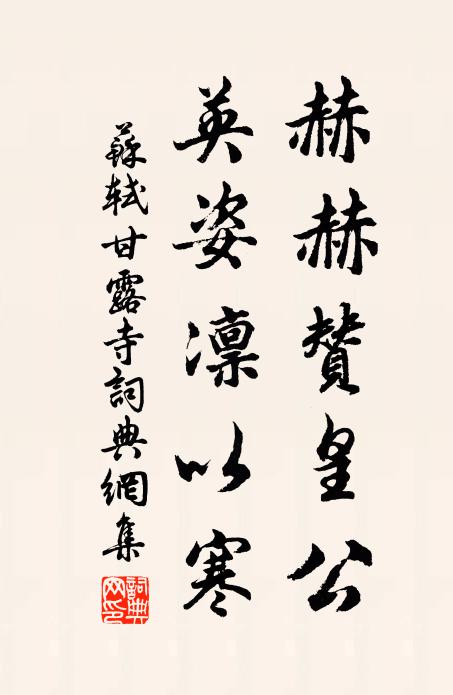 赫赫贊皇公
英姿凛以寒
蘇軾甘露寺詞典網集
詞典
网印